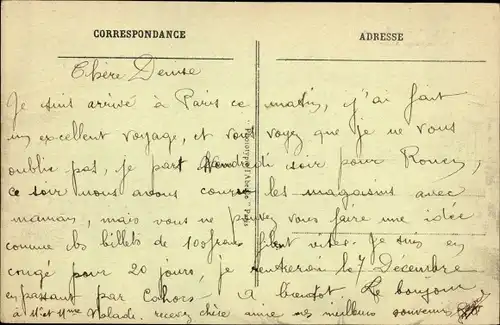 CORRESPONDANCE
ADRESSE
Chère Denise
Je suis arrivé à Paris ce matin, j'ai fait
un excellent voyage, et vous voyez que je ne vous
oublie pas, je part Vendredi soir pour Rouen,
ce soir nous avons couru les magasins avec
maman, mais vous ne pouvez vous faire une idée
comme les billets de 100 frs filent vites. Je suis en
congé pour 20 jours, je rentrerai le 7 Décembre
en passant par Cahors. A bientôt Le bonjour
à Mr et Mme Valade. recevez chère amie mes meilleurs souvenirs